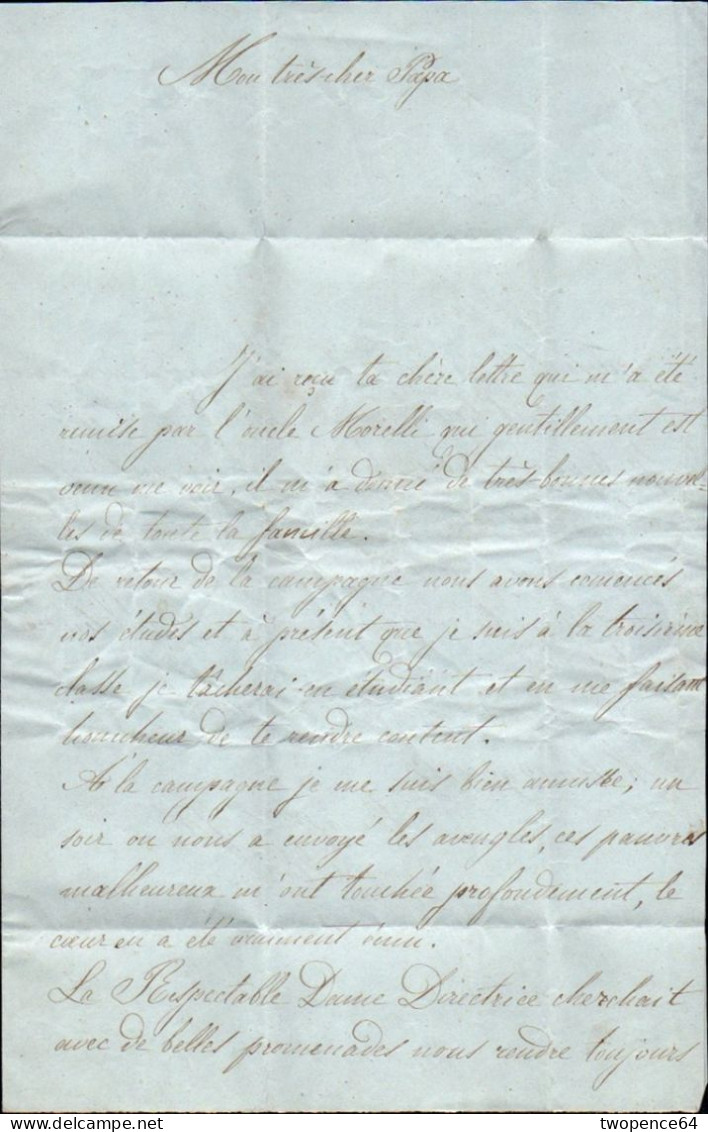 Mon très cher Papa
J'ai reçu ta chère lettre qui m'a été
remise par l'oncle Morelli qui gentillement est
venu me voir, il m'a donné de très bonnes nouvel-
les de toute la famille.
De retour de la campagne nous avons comencés
nos études et à présent que je suis à la troisième
classe je tâcherai en étudiant et en me faisant
honnheur de te rendre content.
À la campagne je me suis bien amusée; un
soir on nous a envoyé les aveugles, ces pauvres
malheureux m'ont touchée profondement, le
cœur en a été vraiment ému.
La Respectable Dame Directrice cherchait
avec de belles promenades nous rendre toujours
delcampe.net
twopence64